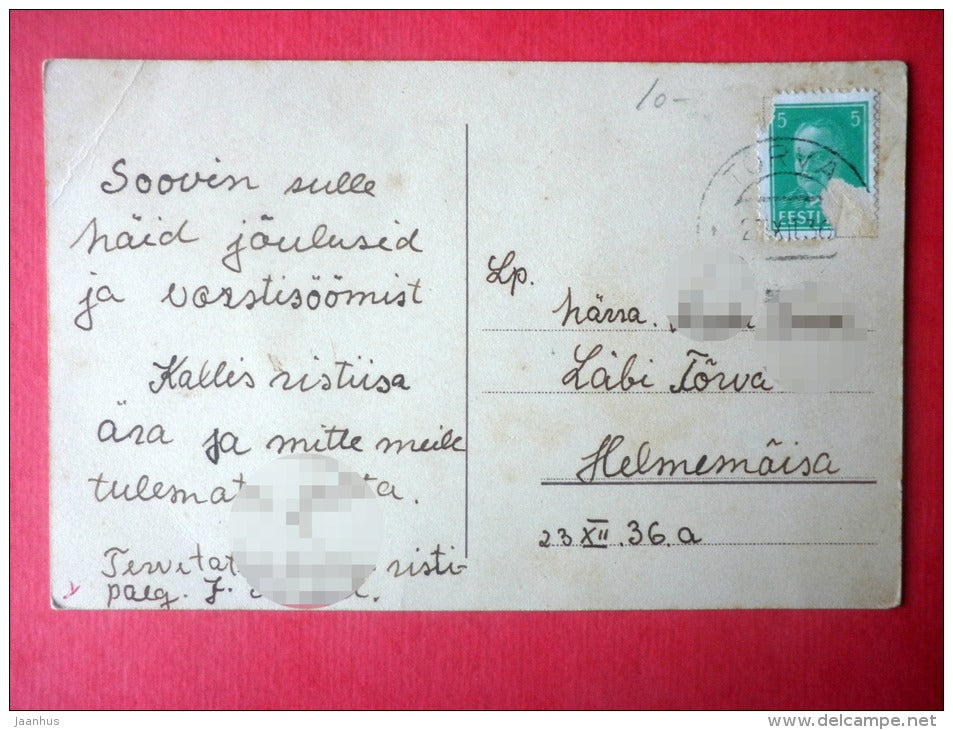 Soovin sulle
häid jõulusid
ja vorstisöömist
Kallis ristiisa
ära ja mitte meile
tulemat
Tervitat risti-
poeg. J.
10-
5 5
EESTI
TÕRVA
XII.36
Lp.
härra.
Läbi Tõrva
Helmemõisa
23 XII.36.a
jaanhus
www.delcampe.net